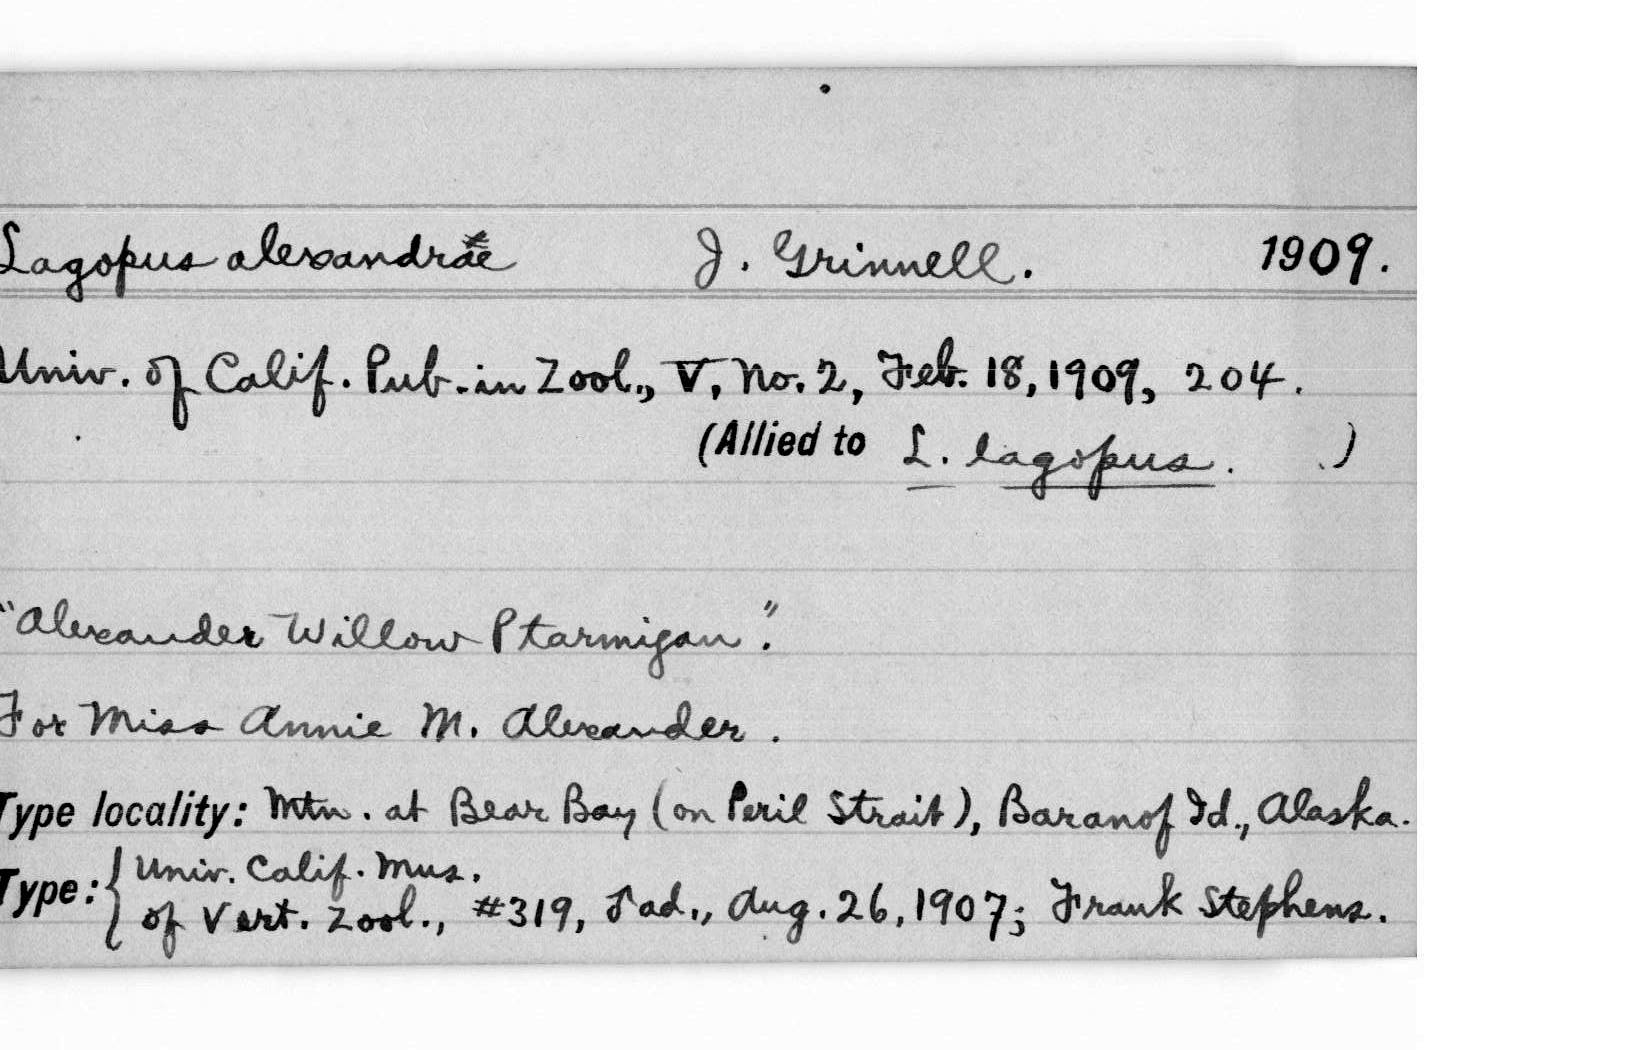 Lagopus alexandrae J. Grinnell. 1909.
Univ. of Calif. Pub. in Zool., V, No. 2, Feb. 18, 1909, 204.
(Allied to L. lagopus. .)
"Alexander Willow Ptarmigan."
For Miss Annie M. Alexander.
Type locality: Mtn. at Bear Bay (on Peril Strait), Baranof Id., Alaska.
Type: { Univ. Calif. Mus.
of Vert. Zool., #319, ad., Aug. 26, 1907; Frank Stephens.